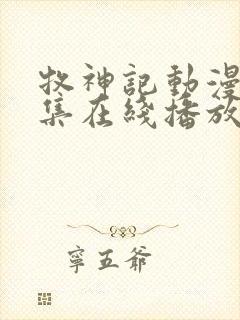 牧神記動漫
集在綫播放
寧五爺